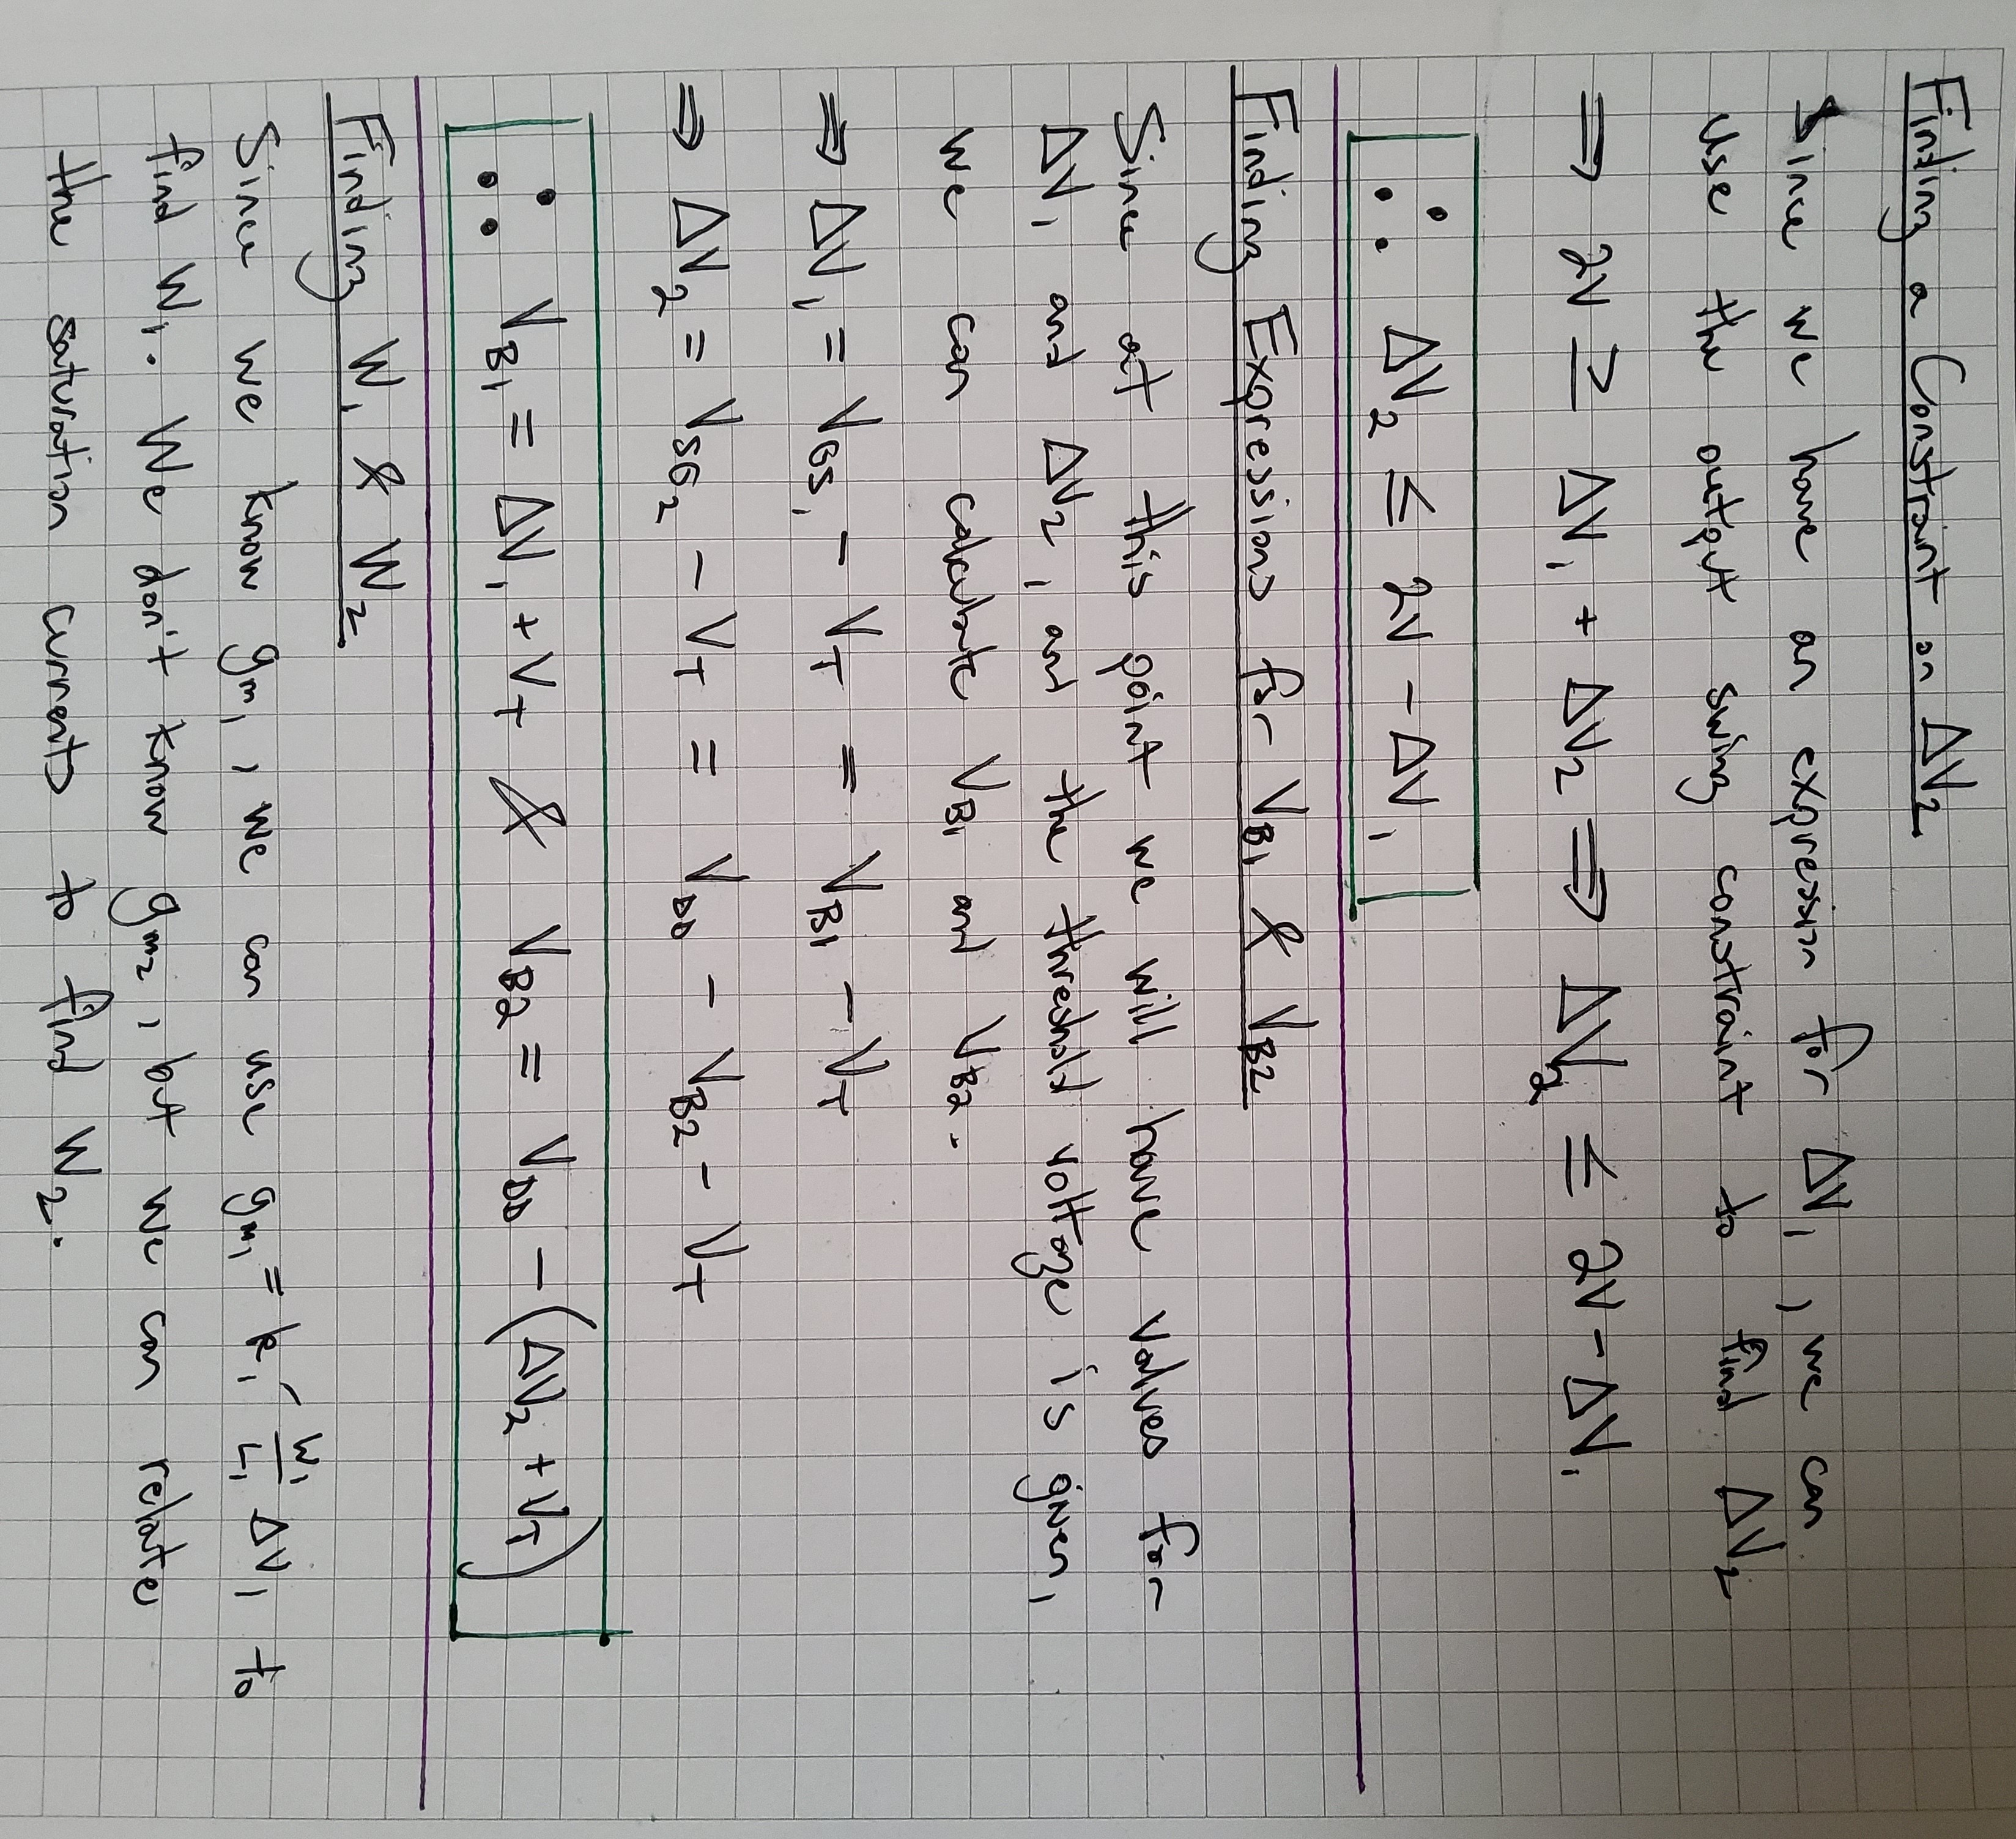 Finding a Constraint on ΔV₂
Since we have an expression for ΔV₁, we can
use the output swing constraint to find ΔV₂
⇒ 2V ≥ ΔV₁ + ΔV₂ ⇒ ΔV₂ ≤ 2V - ΔV₁
∴ ΔV₂ ≤ 2V - ΔV₁
Finding Expressions for V_B1 & V_B2
Since at this point we will have values for
ΔV₁ and ΔV₂, and the threshold voltage is given,
we can calculate V_B1 and V_B2.
⇒ ΔV₁ = V_GS₁ - V_T = V_B1 - V_T
⇒ ΔV₂ = V_SG₂ - V_T = V_DD - V_B2 - V_T
∴ V_B1 = ΔV₁ + V_T & V_B2 = V_DD - (ΔV₂ + V_T)
Finding W₁ & W₂
Since we know g_m₁, we can use g_m₁ = k₁′ W₁/L₁ ΔV₁ to
find W₁. We don't know g_m₂, but we can relate
the saturation currents to find W₂.